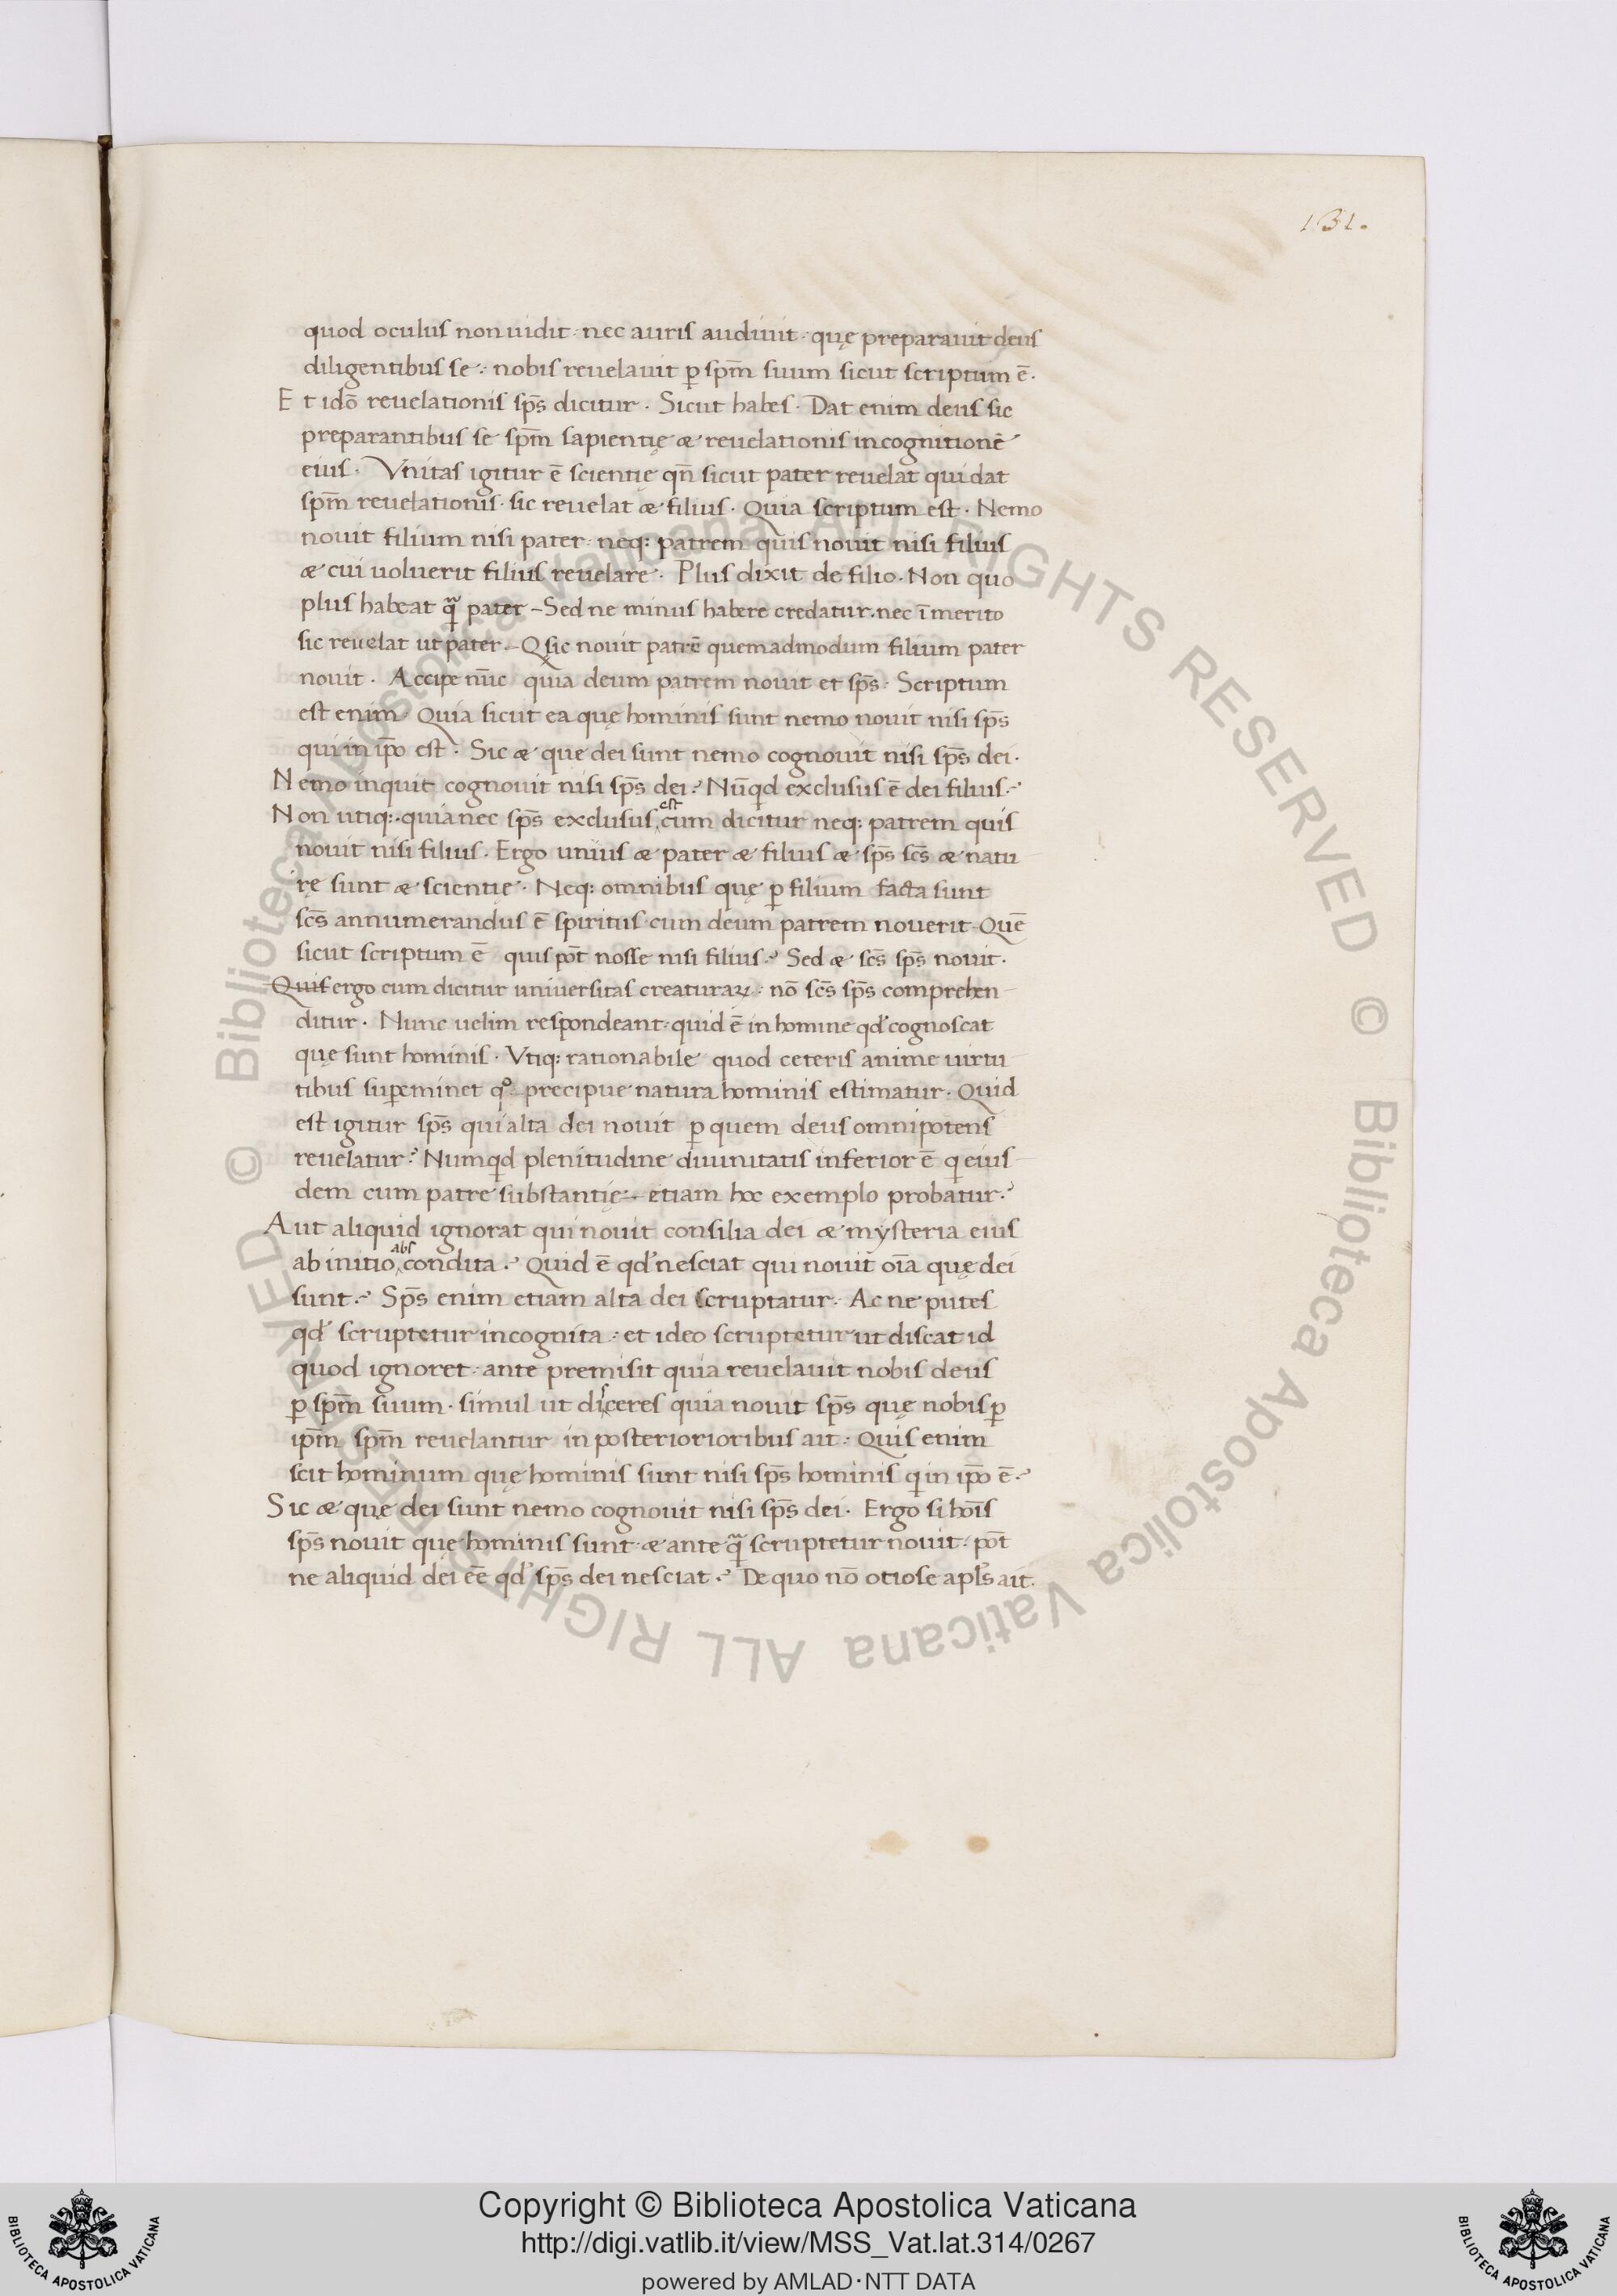 131.
quod oculus non uidit· nec auris audiuit· quę preparauit deus
diligentibus se·: nobis reuelauit ꝑ spm̄ suum sicut scriptum ē·
Et idō reuelationis sp̄s dicitur· Sicut habes· Dat enim deus sic
preparantibus se spm̄ sapientię æ reuelationis in cognitionē
eius· Vnitas igitur ē scientię qn̄ sicut pater reuelat qui dat
spm̄ reuelationis· sic reuelat æ filius· Quia scriptum est· Nemo
nouit filium nisi pater· neq: patrem quis nouit nisi filius
æ cui uoluerit filius reuelare· Plus dixit de filio· Non quo
plus habeat quā pater– Sed ne minus habere credatur· nec ī merito
sic reuelat ut pater·– Q sic nouit patrē quemadmodum filium pater
nouit· Accipe nūc quia deum patrem nouit et sp̄s· Scriptum
est enim· Quia sicut ea quę hominis sunt nemo nouit nisi sp̄s
qui in ip̄o est· Sic æ que dei sunt nemo cognouit nisi sp̄s dei·
Nemo inquit cognouit nisi sp̄s dei? Nūqd exclusus ē dei filius?
Non utiq:· quia nec sp̄s exclusus est cum dicitur neq: patrem quis
nouit nisi filius· Ergo unius æ pater æ filius æ sp̄s sc̄s æ natu
rę sunt æ scientię· Neq: omnibus quę ꝑ filium facta sunt
sc̄s annumerandus ē spiritus· cum deum patrem nouerit· Quē
sicut scriptum ē quis pōt nosse nisi filius? Sed æ sc̄s sp̄s nouit·
Quis ergo cum dicitur uniuersitas creaturaꝝ· nō sc̄s sp̄s comprehen
ditur· Nunc uelim respondeant· quid ē in homine qd' cognoscat
quę sunt hominis· Vtiq: rationabile quod ceteris anime uirtu
tibus suꝑeminet qo precipue natura hominis estimatur· Quid
est igitur sp̄s qui alta dei nouit ꝑ quem deus omnipotens
reuelatur? Numqd plenitudine diuinitatis inferior ē q eius
dem cum patre substantię·– etiam hoc exemplo probatur?
Aut aliquid ignorat qui nouit consilia dei æ mysteria eius
ab initio abscondita? Quid ē qd' nesciat qui nouit oīa quę dei
sunt? Sp̄s enim etiam alta dei scruptatur· Ac ne putes
qd' scruptetur incognita·: et ideo scruptetur ut discat id
quod ignoret· ante premisit quia reuelauit nobis deus
ꝑ spm̄ suum· simul ut disceres quia nouit sp̄s quę nobis ꝑ
ipm̄ spm̄ reuelantur in posteriorioribus ait·: Quis enim
scit hominum quę hominis sunt nisi sp̄s hominis q in ip̄o ē?
Sic æ quę dei sunt nemo cognouit nisi sp̄s dei· Ergo si hoīs
sp̄s nouit quę hominis sunt· æ ante quā scruptetur nouit·: pōt
ne aliquid dei eē̄ qd' sp̄s dei nesciat? De quo nō otiose apl̄s ait·
© Biblioteca Apostolica Vaticana ALL RIGHTS RESERVED © Biblioteca Apostolica Vaticana ALL RIGHTS RESERVED
Copyright © Biblioteca Apostolica Vaticana
http://digi.vatlib.it/view/MSS_Vat.lat.314/0267
powered by AMLAD·NTT DATA
BIBLIOTECA APOSTOLICA VATICANA
BIBLIOTECA APOSTOLICA VATICANA